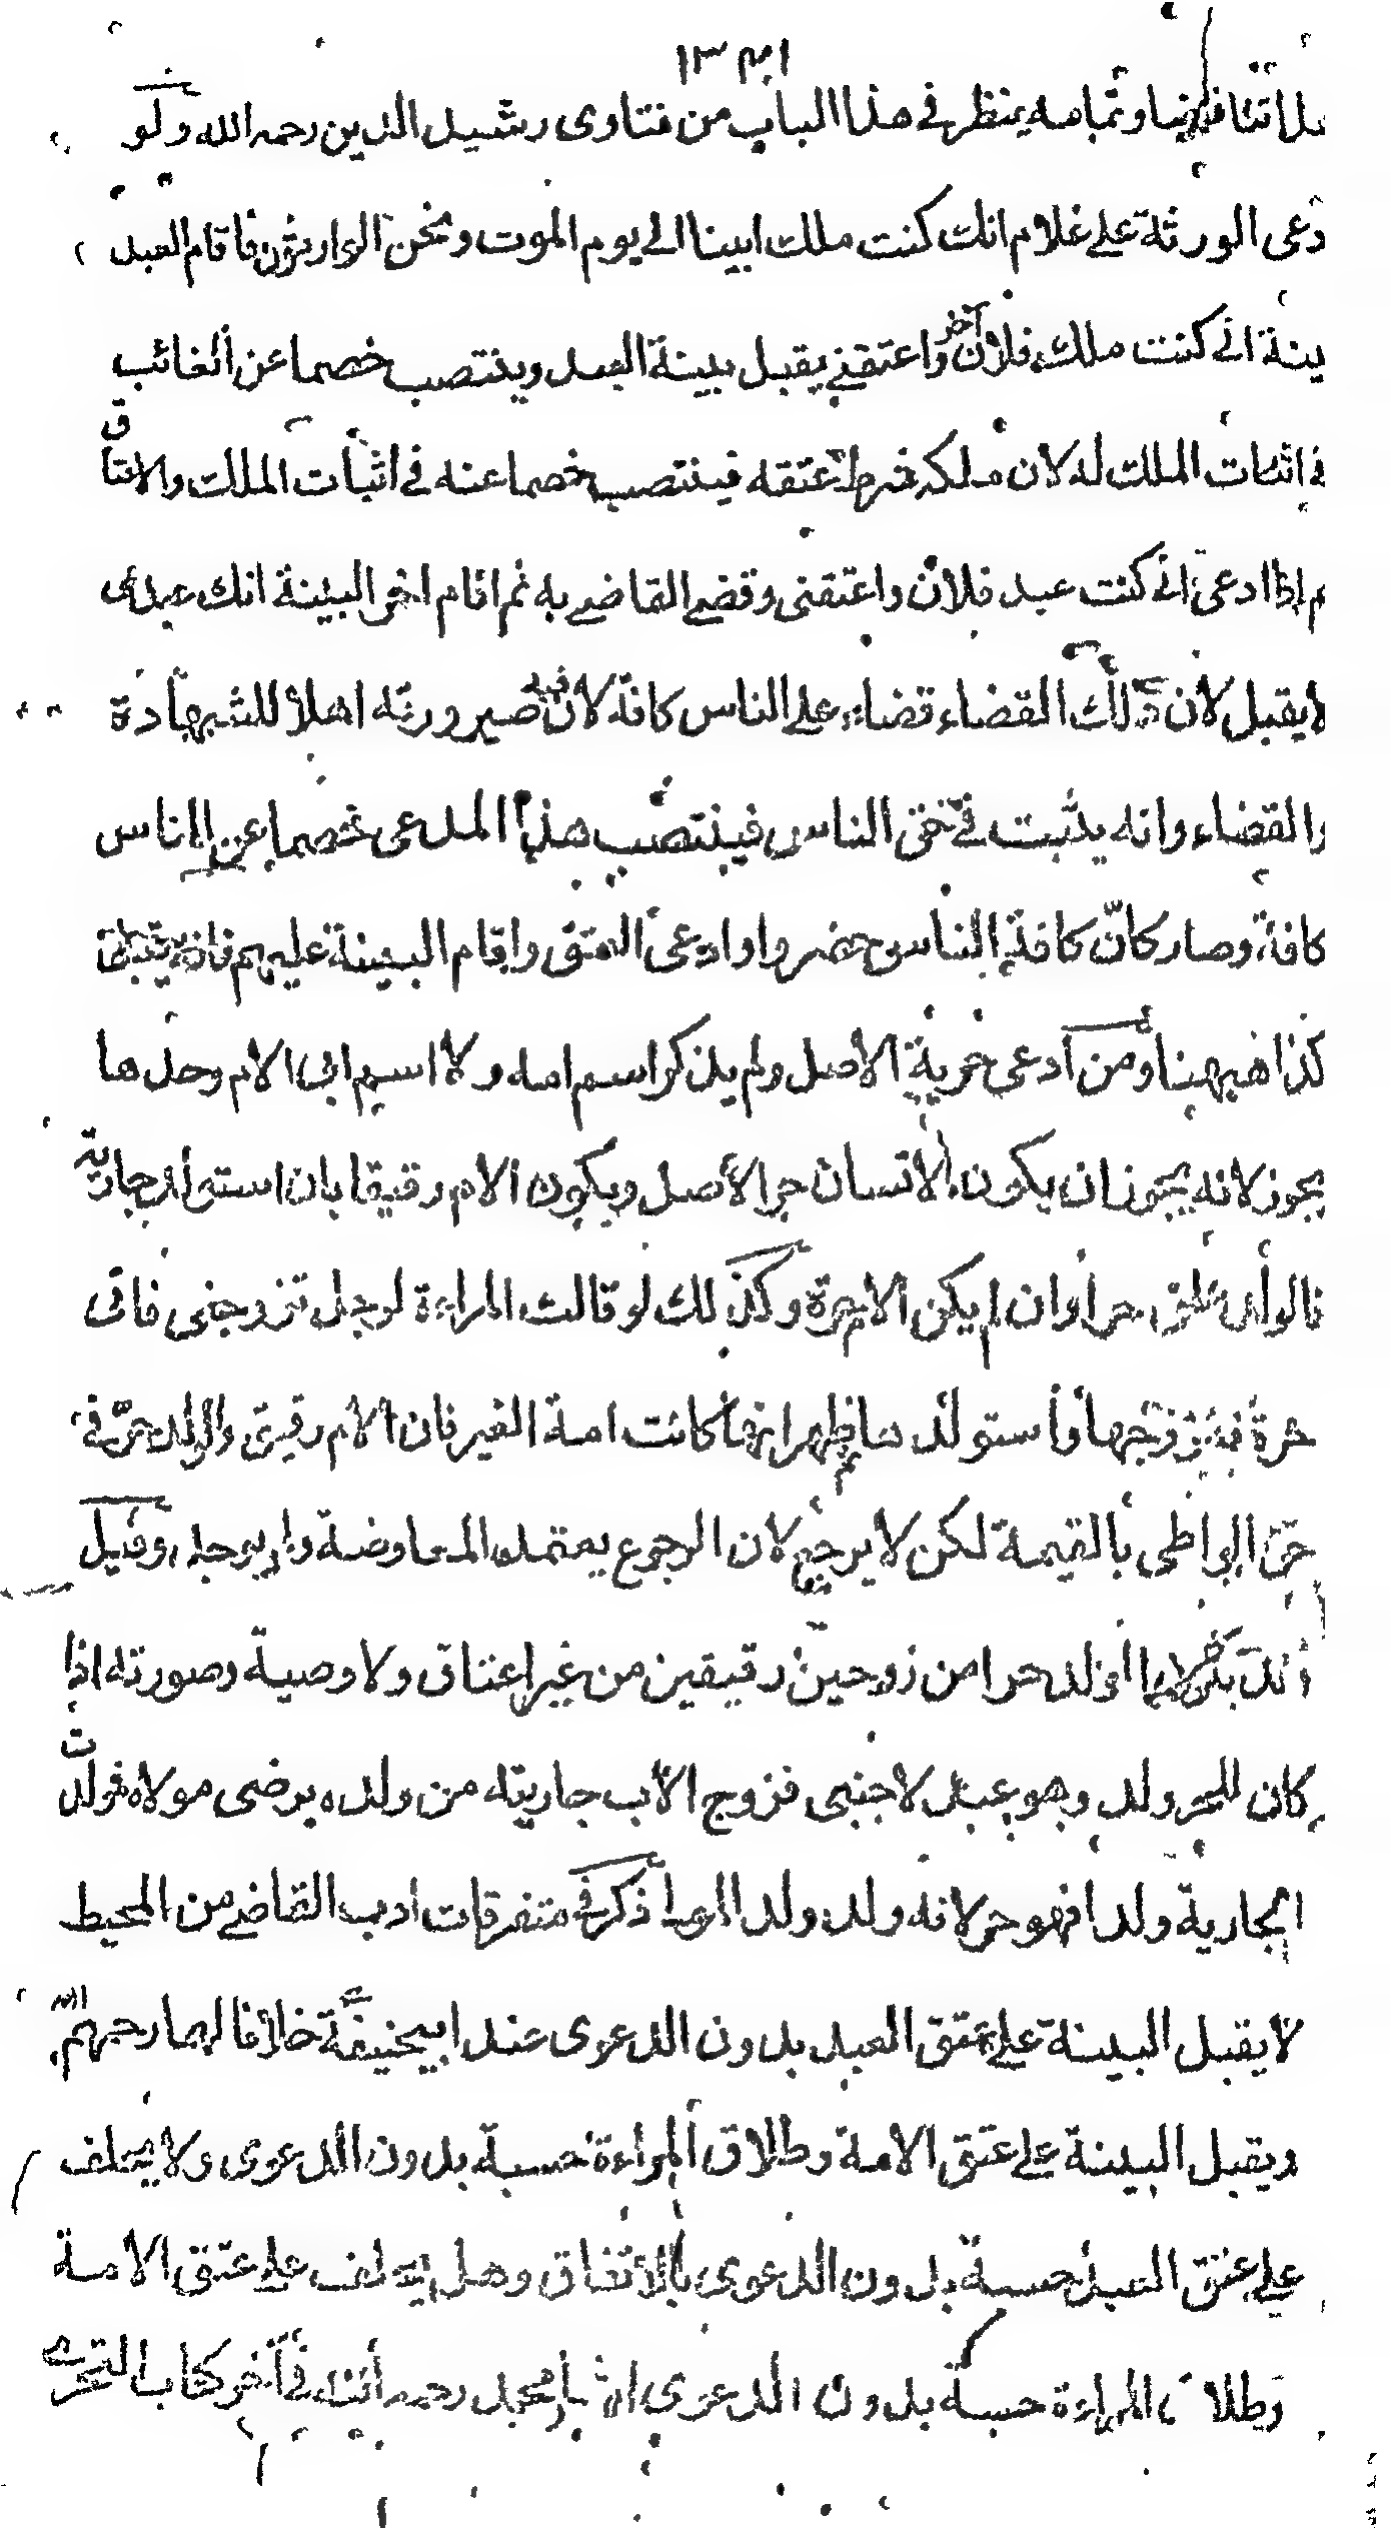 فلا تناقض وتمامه ينظر في هذا الباب من فتاوى رشيد الدين رحمه الله ولو
دعى الورثة على غلام انك كنت ملك ابينا الى يوم الموت ونحن الوارثون فاقام العبد
بينة انى كنت ملك فلان آخر واعتقني يقبل بينة العبد وينتصب خصما عن الغائب
في اثبات الملك له لان ملكه شرط عتقه فينتصب خصما عنه في اثبات الملك والاعتاق
ثم اذا ادعى انى كنت عبد فلان واعتقنى وقضى القاضي به ثم اقام اخر البينة انك عبدى
لا يقبل لان ذلك القضاء قضاء على الناس كافة لان فيه صيرورته اهلا للشهادة
والقضاء وانه يثبت في حق الناس فينتصب هذا المدعى خصما عن الناس
كافة وصار كان كافة الناس حضروا وادعى العتق واقام البينة عليهم فانه يقبل
كذا ههنا ومن ادعى حرية الاصل ولم يذكر اسم امه ولا اسم ابى الام وحدها
يجوز لانه يجوز ان يكون الانسان حر الاصل ويكون الام رقيقا بان استولد جارية
فالولد علق حرا وان لم يكن الام حرة وكذلك لو قالت المراءة لرجل تزوجنى فانى
حرة فتزوجها واستولدها ثم ظهر انها كانت امة الغير فان الام رقيق والولد حر في
حق الواطى بالقيمة لكن لا يرجع لان الرجوع يعتمد المعاوضة ولم يوجد وقيل
حرا من زوجين رقيقين من غير اعتاق ولا وصية وصورته اذا
كان للحر ولد وهو عبد لاجنبى فزوج الاب جاريته من ولده برضى مولاه فولدت
الجارية ولدا فهو حر لانه ولد ولد المولى ذكر في متفرقات ادب القاضي من المحيط
لا يقبل البينة على عتق العبد بدون الدعوى عند ابيحنيفة خلافا لهما رحمهم الله
ويقبل البينة على عتق الامة وطلاق المراءة حسبة بدون الدعوى ولا يحلف
على عتق العبد حسبة بدون الدعوى بالاتفاق وهل يحلف على عتق الامة
وطلاق المراءة حسبة بدون الدعوى اشار محمد رحمه الله في آخر كتاب التحرى